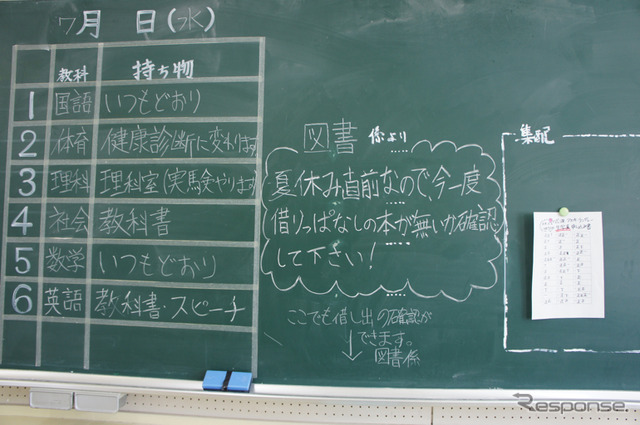 7月 日(水)
教科 持ち物
1 国語 いつもどおり
2 体育 健康診断に変わります
3 理科 理科室(実験やります)
4 社会 教科書
5 数学 いつもどおり
6 英語 教科書・スピーチ
図書 係より
夏休み直前なので、今一度
借りっぱなしの本が無いか確認
して下さい!
ここでも借し出の確認が
できます。
↓ 図書係
集配
Response.